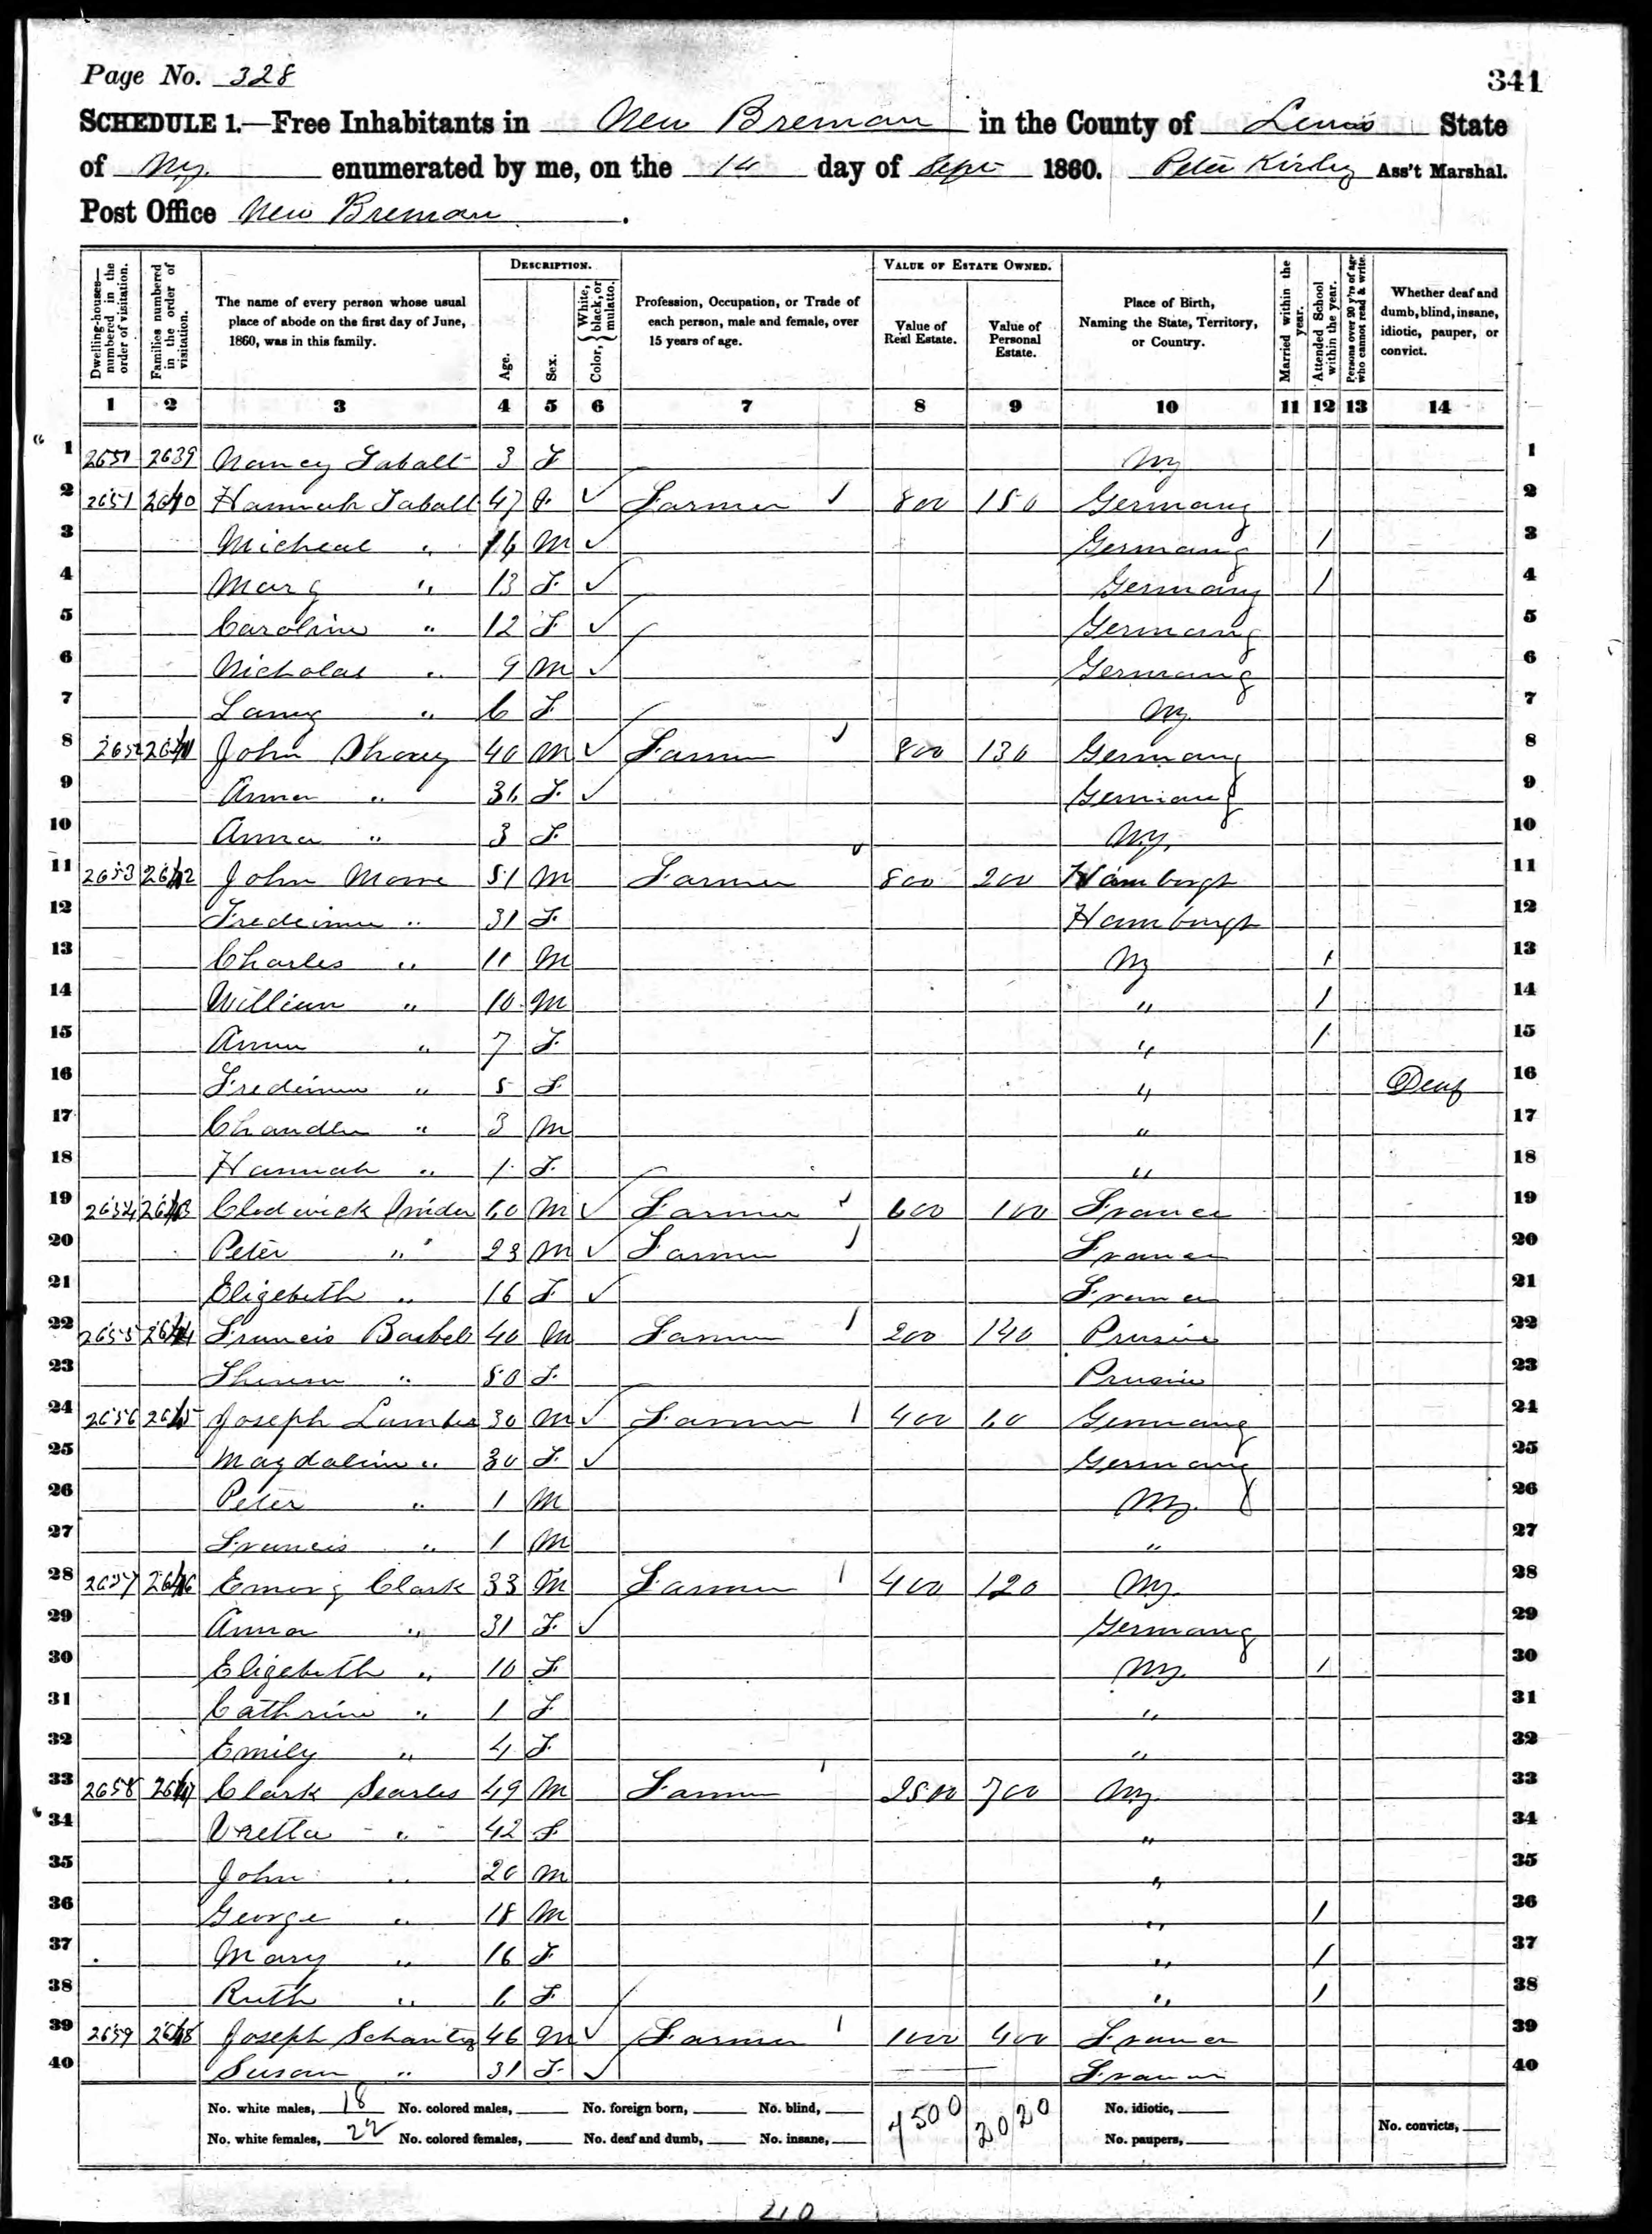 Page No. 328
341
SCHEDULE 1.—Free Inhabitants in New Breman in the County of Lewis State
of Ny. enumerated by me, on the 14 day of Sept 1860. Peter Kirley Ass't Marshal.
Post Office New Breman.
Dwelling-houses—numbered in the order of visitation.
Families numbered in the order of visitation.
The name of every person whose usual place of abode on the first day of June, 1860, was in this family.
DESCRIPTION.
Age.
Sex.
Color, {White, black, or mulatto.
Profession, Occupation, or Trade of each person, male and female, over 15 years of age.
VALUE OF ESTATE OWNED.
Value of Real Estate.
Value of Personal Estate.
Place of Birth, Naming the State, Territory, or Country.
Married within the year.
Attended School within the year.
Persons over 20 y'rs of age who cannot read & write.
Whether deaf and dumb, blind, insane, idiotic, pauper, or convict.
1 2 3 4 5 6 7 8 9 10 11 12 13 14
1 2650 2639 Nancy 3 F Ny 1
2 2651 2640 Hannah 47 F ✓ Farmer 800 150 Germany 2
3 Micheal " 16 M ✓ Germany / 3
4 Mary " 13 F ✓ Germany / 4
5 Caroline " 12 F ✓ Germany 5
6 Nicholas " 9 M ✓ Germany 6
7 Laney " 6 F Ny. 7
8 2652 2641 John 40 M ✓ Farmer 800 130 Germany 8
9 Anna " 36 F ✓ Germany 9
10 Anna " 3 F Ny. 10
11 2653 2642 John 51 M Farmer 800 200 Hamburgh 11
12 " 31 F Hamburgh 12
13 Charles " 11 M Ny / 13
14 William " 10 M " / 14
15 Anna " 7 F " / 15
16 " 5 F " Deaf 16
17 Chandler " 3 M " 17
18 Hannah " 1 F " 18
19 2654 2643 Clodwick Snider 60 M ✓ Farmer 600 100 France 19
20 Peter " 23 M ✓ Farmer France 20
21 Elizebeth " 16 F ✓ France 21
22 2655 2644 Francis 40 M Farmer 200 140 Prusia 22
23 " 50 F Prusia 23
24 2656 2645 Joseph 30 M ✓ Farmer 400 60 Germany 24
25 Magdaline " 30 F ✓ Germany 25
26 Peter " 1 M Ny. 26
27 Francis " 1 M " 27
28 2657 2646 Emory Clark 33 M Farmer 400 120 Ny. 28
29 Anna " 31 F ✓ Germany 29
30 Elizebeth " 10 F Ny. / 30
31 Cathrine " 1 F " 31
32 Emily " 4 F " 32
33 2658 2647 Clark Searles 49 M Farmer 2500 700 Ny 33
34 " 42 F " 34
35 John " 20 M " 35
36 George " 18 M " / 36
37 Mary " 16 F " / 37
38 Ruth " 6 F " / 38
39 2659 2648 Joseph Schantz 46 M ✓ Farmer 1000 400 France 39
40 Susan " 31 F ✓ France 40
No. white males, 18 No. colored males, No. foreign born, No. blind, 7500 2020 No. idiotic,
No. white females, 22 No. colored females, No. deaf and dumb, No. insane, No. paupers, No. convicts,
40